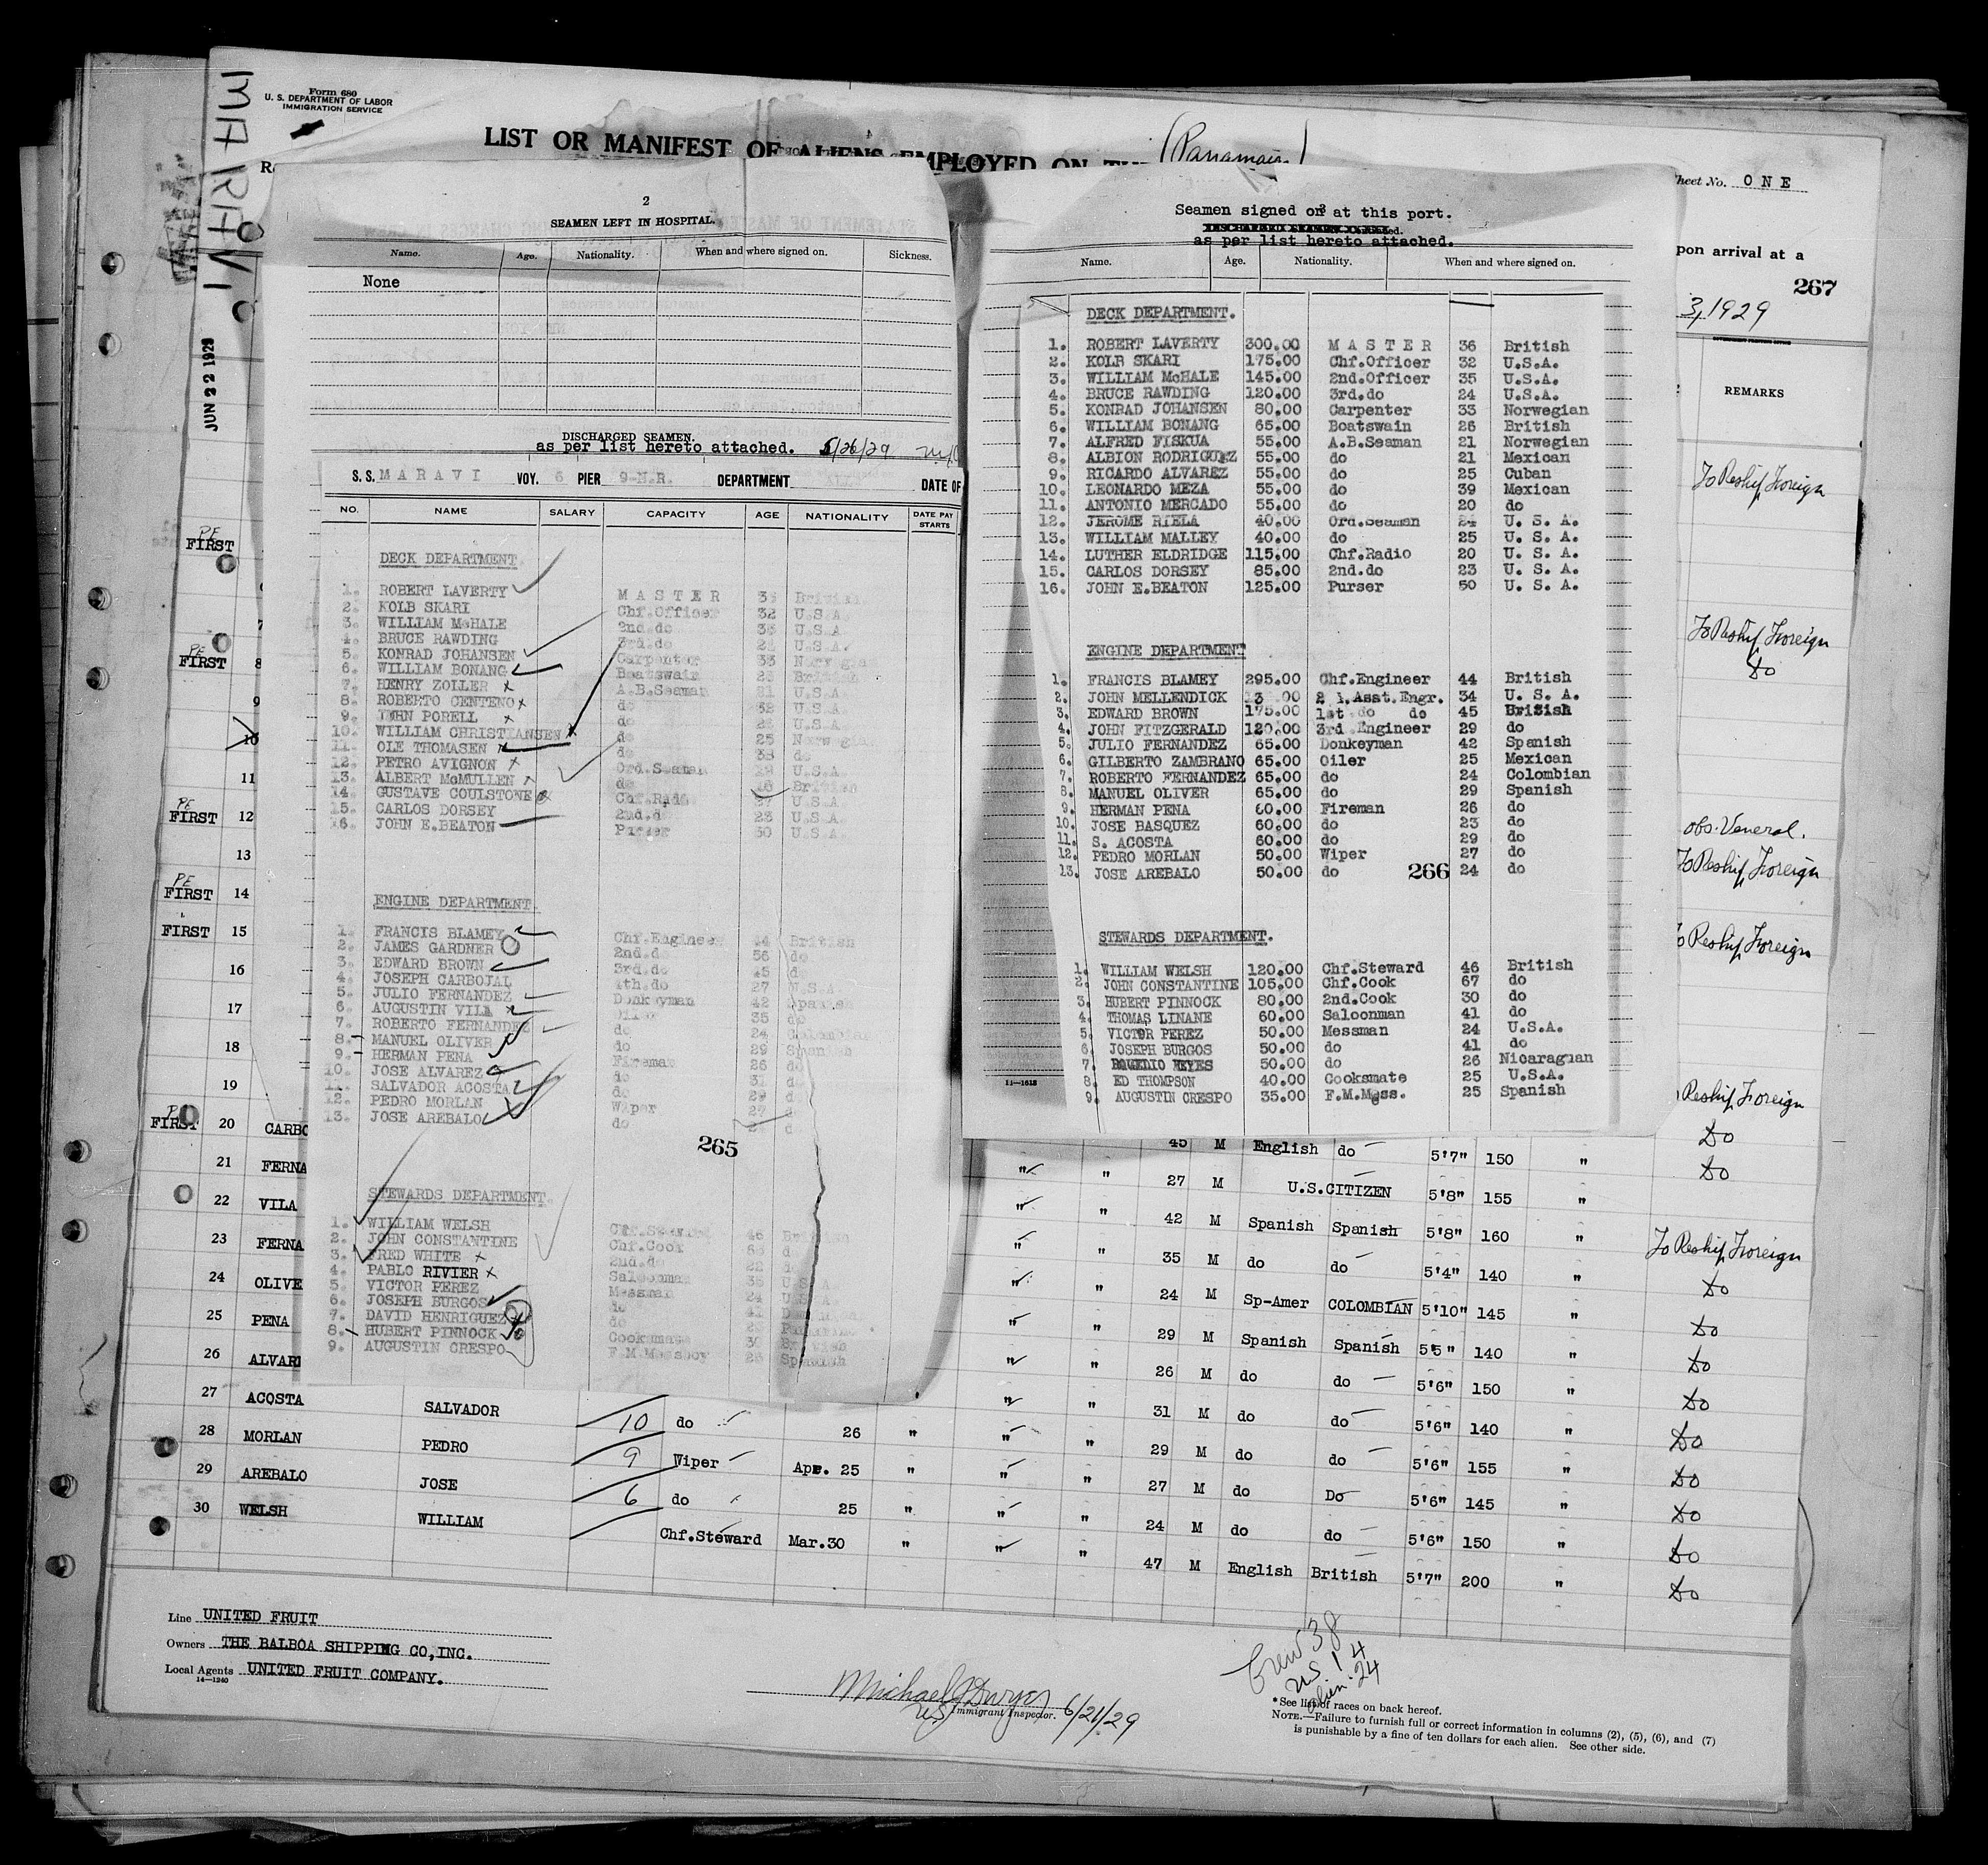 MARAVI
JUN 22 1929
Form 680
U. S. DEPARTMENT OF LABOR
IMMIGRATION SERVICE
LIST OR MANIFEST OF ALIENS EMPLOYED ON
(Panamaian)
Sheet No. ONE
upon arrival at a
267
3, 1929
REMARKS
2
SEAMEN LEFT IN HOSPITAL.
Name. Age. Nationality. When and where signed on. Sickness.
None
DISCHARGED SEAMEN.
as per list hereto attached. 5/26/29
S.S. MARAVI VOY. 6 PIER 9-N.R. DEPARTMENT DATE OF
NO. NAME SALARY CAPACITY AGE NATIONALITY DATE PAY STARTS
DECK DEPARTMENT.
1. ROBERT LAVERTY MASTER 36 British
2. KOLB SKARI Chf.Officer 32 U.S.A.
3. WILLIAM McHALE 2nd.do 35 U.S.A.
4. BRUCE RAWDING 3rd.do 24 U.S.A.
5. KONRAD JOHANSEN Carpenter 33 Norwegian
6. WILLIAM BONANG Boatswain British
7. HENRY ZOLLER A.B.Seaman U.S.A.
8. ROBERTO CENTENO do U.S.A.
9. JOHN PORELL do U.S.A.
10. WILLIAM CHRISTIANSEN do 25 Norwegian
11. OLE THOMASEN do 38 do
12. PETRO AVIGNON Ord.Seaman U.S.A.
13. ALBERT McMULLEN do British
14. GUSTAVE COULSTONE Chf.Radio U.S.A.
15. CARLOS DORSEY 2nd.do 23 U.S.A.
16. JOHN E.BEATON Purser 50 U.S.A.
ENGINE DEPARTMENT
1. FRANCIS BLAMEY Chf.Engineer 44 British
2. JAMES GARDNER 2nd.do 56 do
3. EDWARD BROWN 3rd.do 45 do
4. JOSEPH CARBOJAL 4th.do 27 U.S.A.
5. JULIO FERNANDEZ Donkeyman 42 Spanish
6. AUGUSTIN VILA Oiler 35 do
7. ROBERTO FERNANDEZ do 24 Colombian
8. MANUEL OLIVER do 29 Spanish
9. HERMAN PENA Fireman 26 do
10. JOSE ALVAREZ do 31 do
11. SALVADOR ACOSTA do 29 do
12. PEDRO MORLAN Wiper 27 do
13. JOSE AREBALO do
265
STEWARDS DEPARTMENT.
1. WILLIAM WELSH Chf.Steward 46 British
2. JOHN CONSTANTINE Chf.Cook
3. FRED WHITE 2nd.do
4. PABLO RIVIER Saloonman U.S.A.
5. VICTOR PEREZ Messman 24 U.S.A.
6. JOSEPH BURGOS do 41
7. DAVID HENRIGUEZ do
8. HUBERT PINNOCK Cooksmate 30 British
9. AUGUSTIN CRESPO F.M.Messboy 25 Spanish
3
Seamen signed on at this port.
as per list hereto attached.
Name. Age. Nationality. When and where signed on.
DECK DEPARTMENT.
1. ROBERT LAVERTY 300.00 MASTER 36 British
2. KOLB SKARI 175.00 Chf.Officer 32 U.S.A.
3. WILLIAM McHALE 145.00 2nd.Officer 35 U.S.A.
4. BRUCE RAWDING 120.00 3rd.do 24 U.S.A.
5. KONRAD JOHANSEN 80.00 Carpenter 33 Norwegian
6. WILLIAM BONANG 65.00 Boatswain 26 British
7. ALFRED FISKUA 55.00 A.B.Seaman 21 Norwegian
8. ALBION RODRIGUEZ 55.00 do 21 Mexican
9. RICARDO ALVAREZ 55.00 do 25 Cuban
10. LEONARDO MEZA 55.00 do 39 Mexican
11. ANTONIO MERCADO 55.00 do 20 do
12. JEROME RIELA 40.00 Ord.Seaman 24 U. S. A.
13. WILLIAM MALLEY 40.00 do 25 U. S. A.
14. LUTHER ELDRIDGE 115.00 Chf.Radio 20 U. S. A.
15. CARLOS DORSEY 85.00 2nd.do 23 U. S. A.
16. JOHN E.BEATON 125.00 Purser 50 U. S. A.
ENGINE DEPARTMENT
1. FRANCIS BLAMEY 295.00 Chf.Engineer 44 British
2. JOHN MELLENDICK Asst.Engr. 34 U. S. A.
3. EDWARD BROWN 175.00 1st do do 45 British
4. JOHN FITZGERALD 120.00 3rd Engineer 29 do
5. JULIO FERNANDEZ 65.00 Donkeyman 42 Spanish
6. GILBERTO ZAMBRANO 65.00 Oiler 25 Mexican
7. ROBERTO FERNANDEZ 65.00 do 24 Colombian
8. MANUEL OLIVER 65.00 do 29 Spanish
9. HERMAN PENA 60.00 Fireman 26 do
10. JOSE BASQUEZ 60.00 do 23 do
11. S. ACOSTA 60.00 do 29 do
12. PEDRO MORLAN 50.00 Wiper 27 do
13. JOSE AREBALO 50.00 do 266 24 do
STEWARDS DEPARTMENT.
1. WILLIAM WELSH 120.00 Chf.Steward 46 British
2. JOHN CONSTANTINE 105.00 Chf.Cook 67 do
3. HUBERT PINNOCK 80.00 2nd.Cook 30 do
4. THOMAS LINANE 60.00 Saloonman 41 do
5. VICTOR PEREZ 50.00 Messman 24 U.S.A.
6. JOSEPH BURGOS 50.00 do 41 do
7. ROGEDIO REYES 50.00 do 26 Nicaraguan
8. ED THOMPSON 40.00 Cooksmate 25 U.S.A.
9. AUGUSTIN CRESPO 35.00 F.M.Mess. 25 Spanish
11-1618
To Reship Foreign
To Reship Foreign
do
obs. Veneral.
To Reship Foreign
To Reship Foreign
Reship Foreign
PE FIRST
7
PE FIRST 8
9
10
11
PE FIRST 12
13
PE FIRST 14
FIRST 15
16
17
18
19
FIRST 20 CARBO 45 M English do 5'7" 150 " do
21 FERNA " " 27 M U.S.CITIZEN 5'8" 155 " do
22 VILA " " 42 M Spanish Spanish 5'8" 160 " To Reship Foreign
23 FERNA " " 35 M do do 5'4" 140 " do
24 OLIVE " " 24 M Sp-Amer COLOMBIAN 5'10" 145 " do
25 PENA " " 29 M Spanish Spanish 5'5" 140 " do
26 ALVAR " " 26 M do do 5'6" 150 " do
27 ACOSTA SALVADOR 10 do 26 " " " 31 M do do 5'6" 140 " do
28 MORLAN PEDRO 9 Wiper Apr. 25 " " " 29 M do do 5'6" 155 " do
29 AREBALO JOSE 6 do 25 " " " 27 M do Do 5'6" 145 " do
30 WELSH WILLIAM Chf.Steward Mar.30 " " " 24 M do do 5'6" 150 " do
47 M English British 5'7" 200 " do
Line UNITED FRUIT
Owners THE BALBOA SHIPPING CO,INC.
Local Agents UNITED FRUIT COMPANY.
14-1240
Michael Dwyer 6/21/29
US Immigrant Inspector.
Crew 38
US 14
alien 24
*See list of races on back hereof.
NOTE.—Failure to furnish full or correct information in columns (2), (5), (6), and (7)
is punishable by a fine of ten dollars for each alien. See other side.